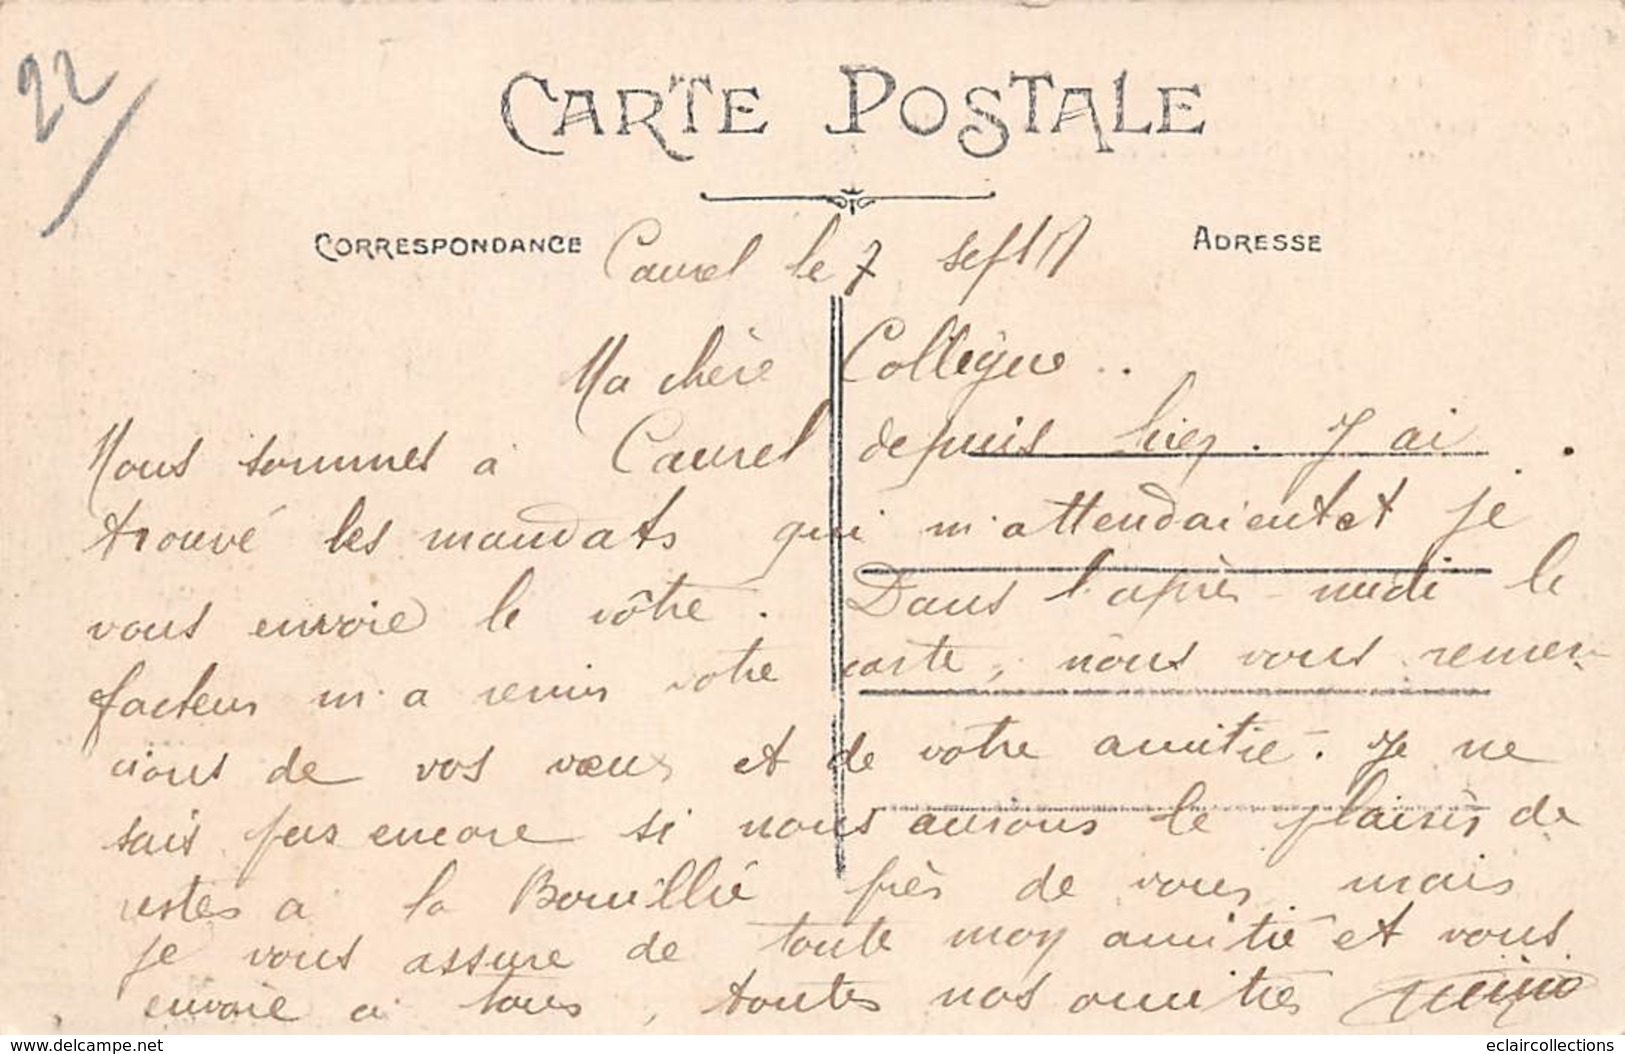 22
CARTE POSTALE
CORRESPONDANCE
ADRESSE
Caurel le 7 sept 17
Ma chère Collègue..
Nous sommes à Caurel depuis hier. J'ai
trouvé les mandats qui m'attendaient et je
vous envoie le vôtre. Dans l'après-midi le
facteur m'a remis votre carte, nous vous remer-
cions de vos vœux et de votre amitié. Je ne
sais pas encore si nous aurons le plaisir de
rester à la Bouillie près de vous, mais
je vous assure de toute mon amitié et vous
envoie à tous, toutes nos amitiés
delcampe.net
eclaircollections